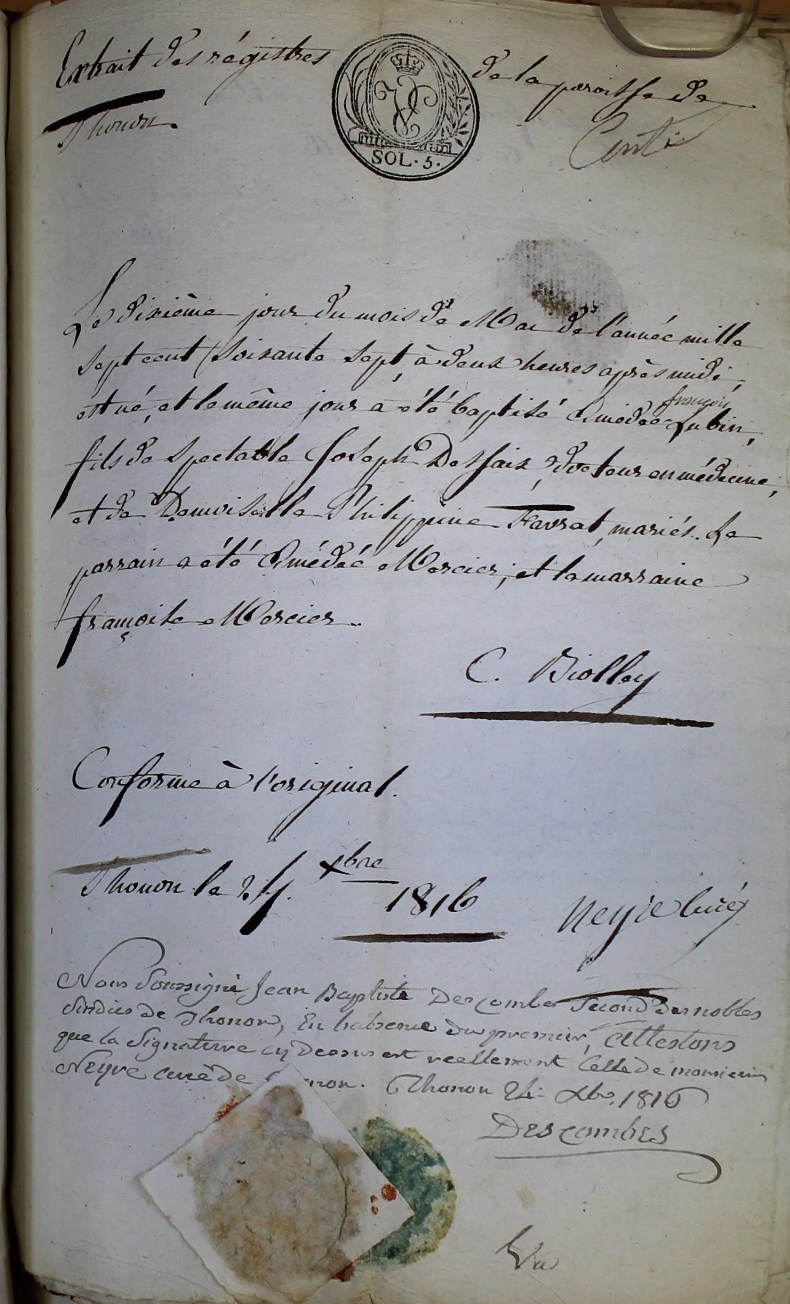 Extrait des régistres de la paroisse de
Thonon.
SOL. 5.
Le dixième jour du mois de Mai de l'année mille
sept cent soixante sept à deux heures après midi,
est né, et le même jour a été baptisé Amédée françois Lubin,
fils de spectable Joseph Dessaix, docteur en médecine,
et de Demoiselle Philippine Favrat, mariés. Le
parrain a été Amédée Mercier, et la marraine
françoise Mercier.
C. Biolley
Conforme à l'original.
Thonon le 24. xbre 1816
Neyre curé
Nous Soussigné Jean Baptiste Descombes Second des nobles
Sindics de Thonon, En l'absence du premier, attestons
que la Signature cy dessus est reellement Celle de monsieur
Neyre curé de Thonon. Thonon 24 Xbre 1816
Descombes
Vu